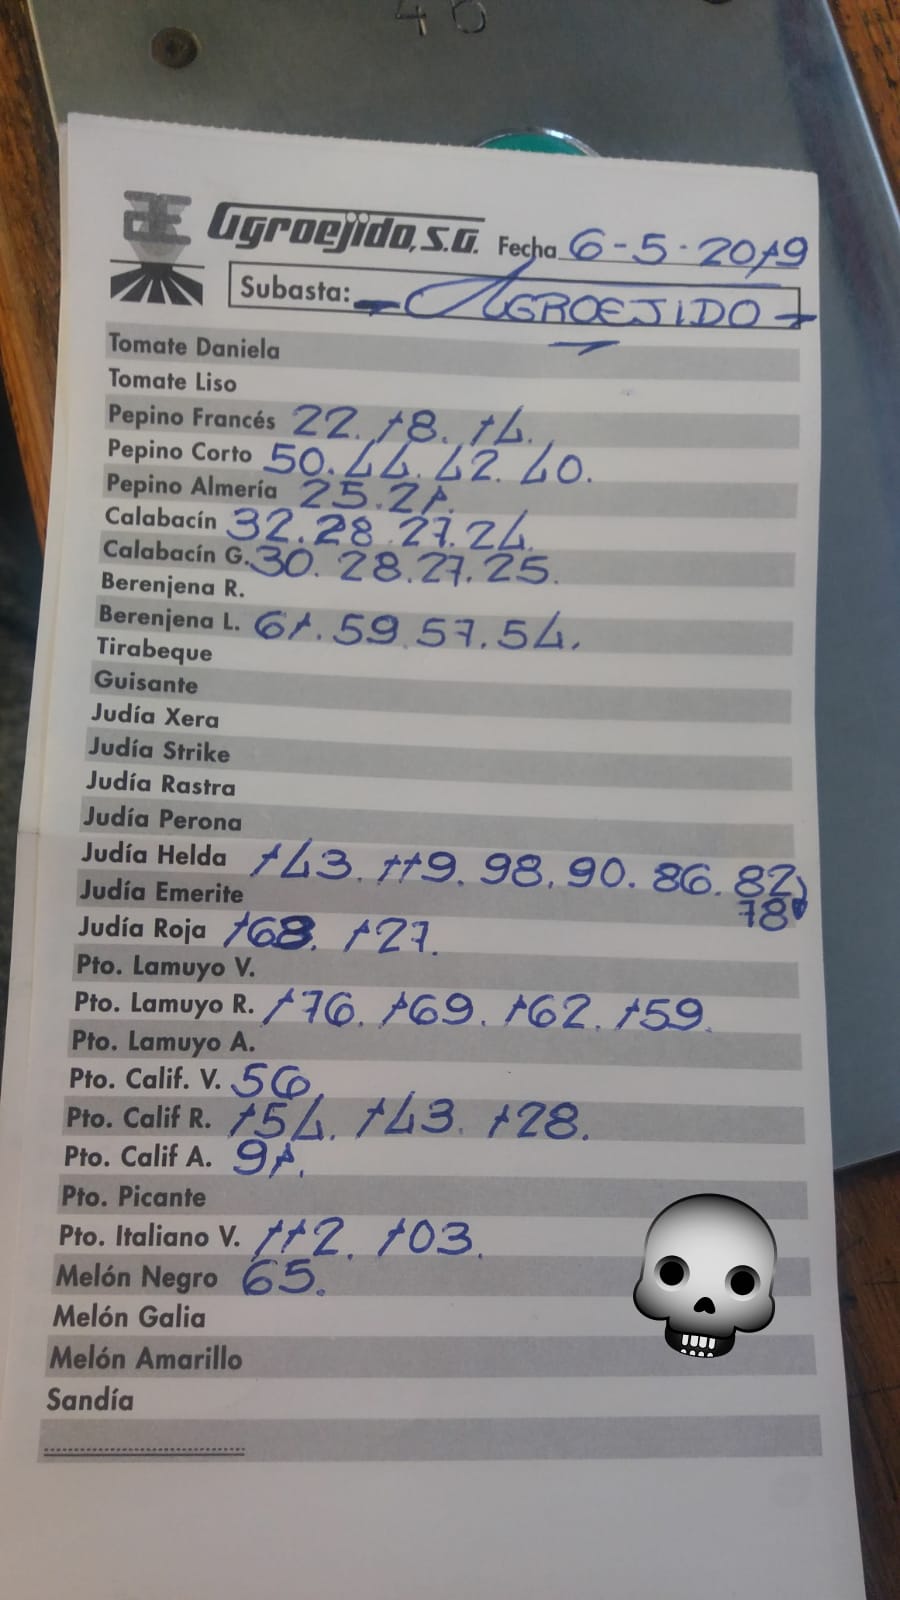 46
Agroejido, S.A. Fecha 6-5-2019
Subasta: - AGROEJIDO -
Tomate Daniela
Tomate Liso
Pepino Francés 22. 18. 14.
Pepino Corto 50. 44. 42. 40.
Pepino Almería 25. 21.
Calabacín 32. 28. 27. 24.
Calabacín G. 30. 28. 27. 25.
Berenjena R.
Berenjena L. 61. 59. 57. 54.
Tirabeque
Guisante
Judía Xera
Judía Strike
Judía Rastra
Judía Perona
Judía Helda 143. 119. 98. 90. 86. 82
78
Judía Emerite
Judía Roja 168. 127.
Pto. Lamuyo V.
Pto. Lamuyo R. 176. 169. 162. 159.
Pto. Lamuyo A.
Pto. Calif. V. 56
Pto. Calif R. 154. 143. 128.
Pto. Calif A. 91.
Pto. Picante
Pto. Italiano V. 112. 103.
Melón Negro 65.
Melón Galia
Melón Amarillo
Sandía